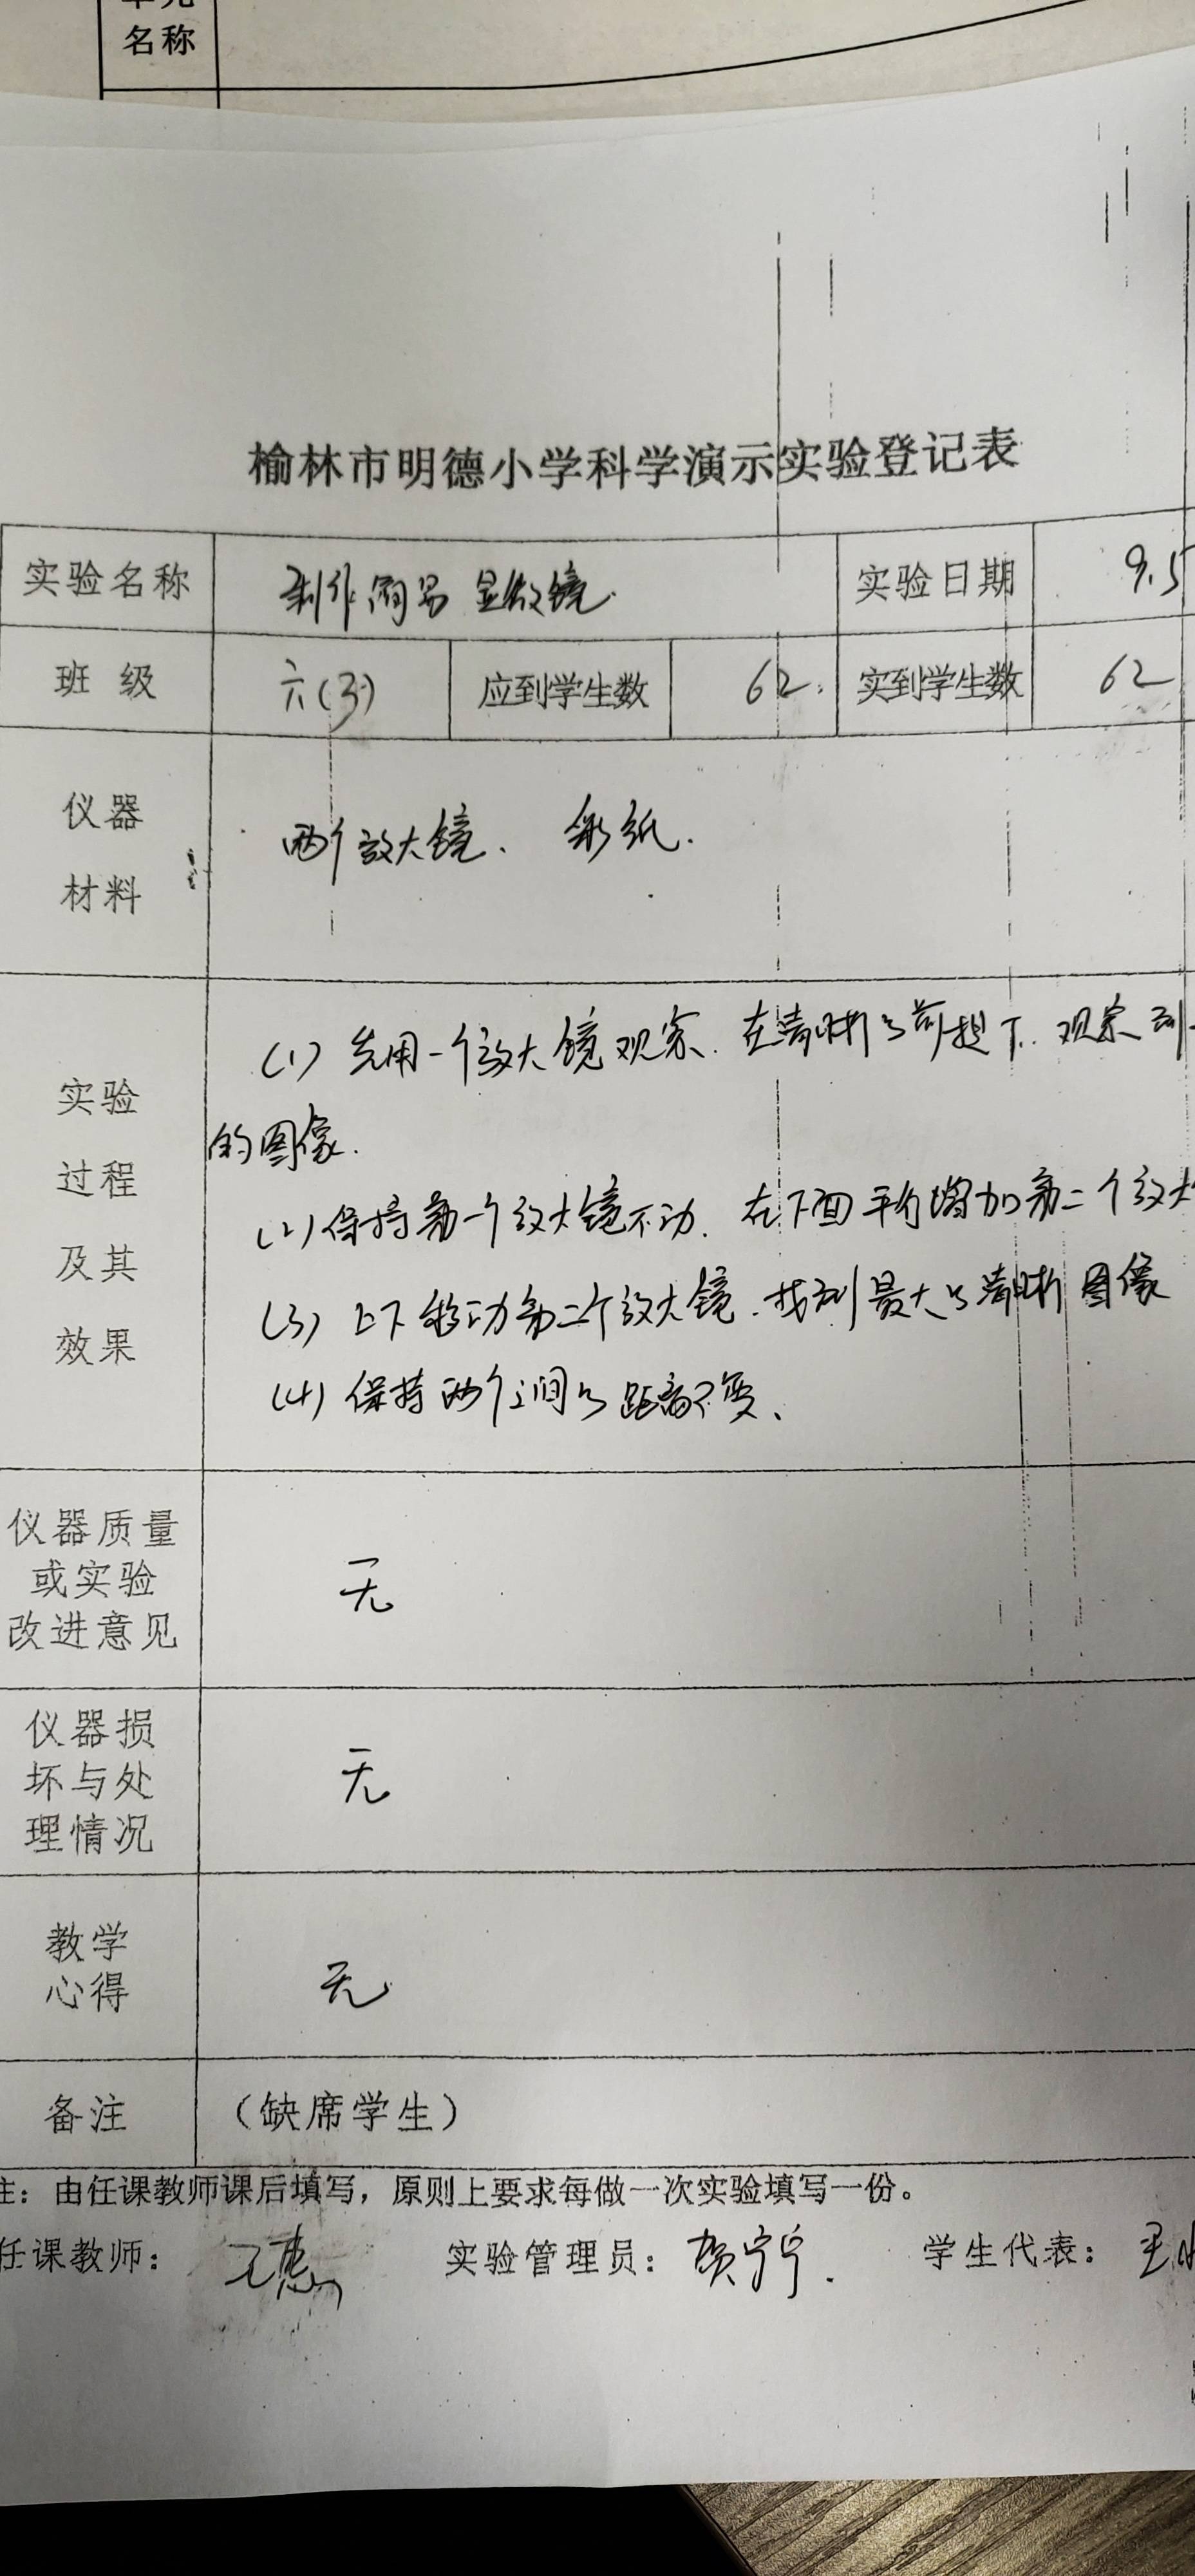 名称
榆林市明德小学科学演示实验登记表
实验名称 制作简易显微镜. 实验日期 9.5
班 级 六(3) 应到学生数 62. 实到学生数 62
仪器
材料
两个放大镜、 彩纸.
实验
过程
及其
效果
(1) 先用一个放大镜观察. 在清晰的前提下. 观察到
的图像.
(2) 保持第一个放大镜不动. 在下面平行增加第二个放大
(3) 上下移动第二个放大镜.找到最大的清晰图像
(4) 保持两个之间的距离不变、
仪器质量
或实验
改进意见
无
仪器损
坏与处
理情况
无
教学
心得
无
备注 （缺席学生）
注：由任课教师课后填写，原则上要求每做一次实验填写一份。
任课教师： 实验管理员：贺宁宁. 学生代表：王